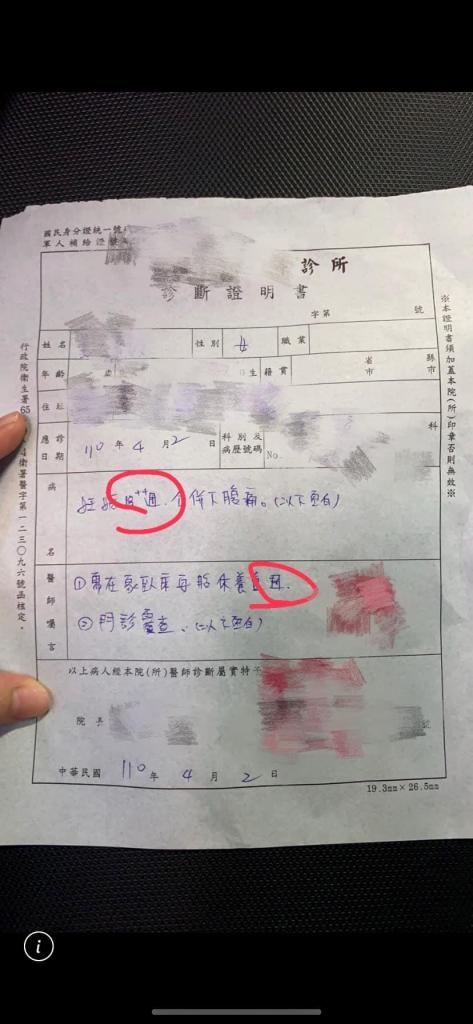 國民身分證統一號
軍人補給證號
診所
診斷證明書
字第 號
姓名 性別 女 職業
年齡 生 籍貫 省市 縣市
住址
應診日期 110年4月2日 科別及病歷號碼 No. 科
病名
妊娠 週,合併下腹痛。(以下空白)
醫師囑言
①需在家臥床安胎休養 週.
②門診複查。(以下空白)
以上病人經本院(所)醫師診斷屬實特予
院
中華民國 110年4月2日
19.3mm×26.5mm
※本證明書須加蓋本院(所)印章否則無效※
行政院衛生署65 4衛署醫字第一二三〇九六號函核定。